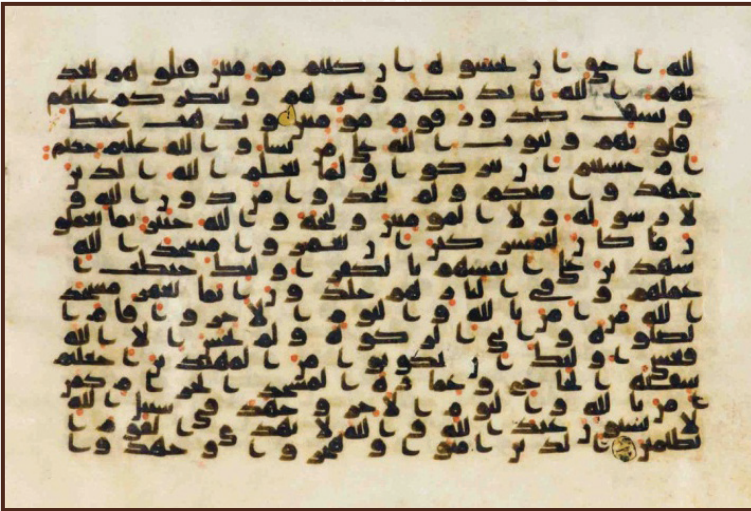 لله احق ان تخشوه ان كنتم مومنين قتلوهم يعذ
بهم الله بايديكم ويخزهم وينصركم عليهم
ويشف صدور قوم مومنين ويذهب غيظ
قلوبهم ويتوب الله على من يشا والله عليم حكيم
ام حسبتم ان تتركوا ولما يعلم الله الذين
جهدوا منكم ولم يتخذوا من دون الله و
لا رسوله ولا المومنين وليجة والله خبير بما تعملو
ن ما كان للمشركين ان يعمروا مسجد الله
شهدين على انفسهم بالكفر اوليك حبطت ا
عملهم وفي النار هم خلدون انما يعمر مسجد
الله من امن بالله واليوم الاخر واقام ا
لصلوة واتى الزكوة ولم يخش الا الله
فعسى اوليك ان يكونوا من المهتدين اجعلتم
سقية الحاج وعمارة المسجد الحرام كمن
امن بالله واليوم الاخر وجهد في سبيل الله
لا يستون عند الله والله لا يهدي القوم ا
لظلمين الذين امنوا وهجروا وجهدوا